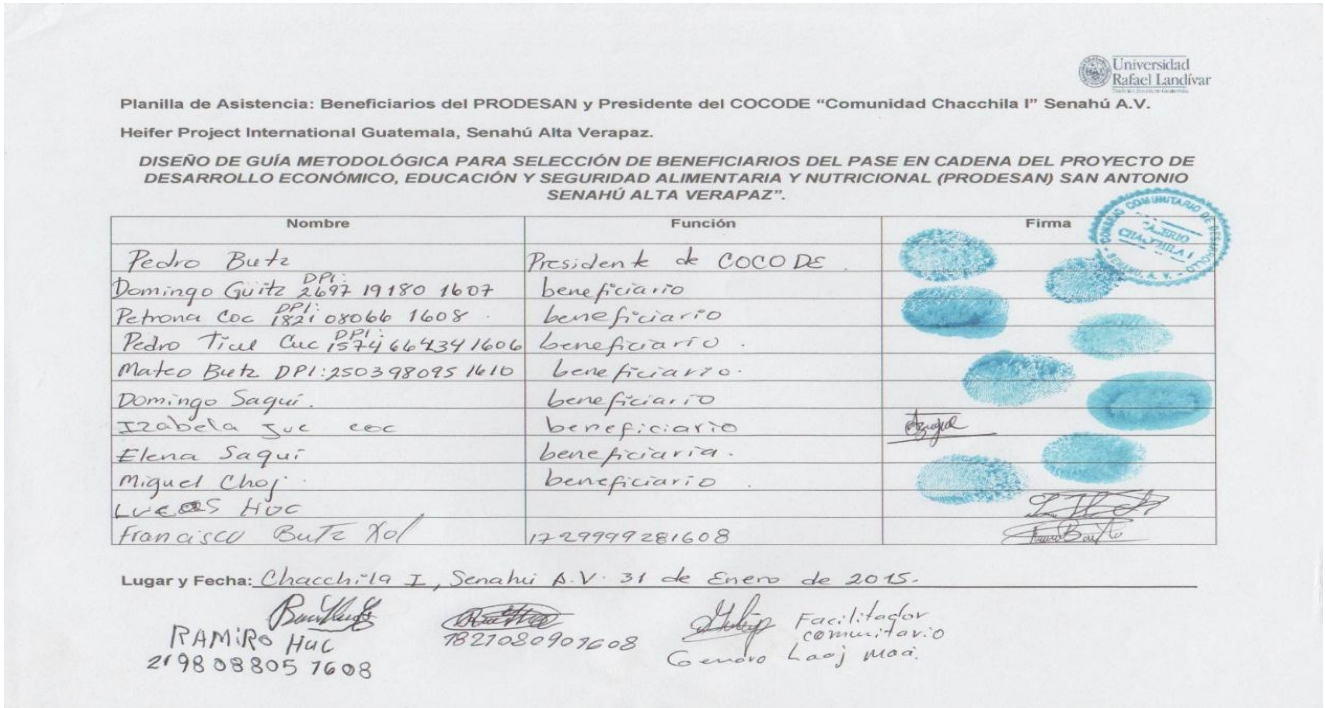 Universidad
Rafael Landívar
Planilla de Asistencia: Beneficiarios del PRODESAN y Presidente del COCODE “Comunidad Chacchila I” Senahú A.V.
Heifer Project International Guatemala, Senahú Alta Verapaz.
DISEÑO DE GUÍA METODOLÓGICA PARA SELECCIÓN DE BENEFICIARIOS DEL PASE EN CADENA DEL PROYECTO DE
DESARROLLO ECONÓMICO, EDUCACIÓN Y SEGURIDAD ALIMENTARIA Y NUTRICIONAL (PRODESAN) SAN ANTONIO
SENAHÚ ALTA VERAPAZ”.
Nombre Función Firma
CONSEJO COMUNITARIO DE DESARROLLO
CASERIO
CHACCHILA I
SENAHU A.V.
Pedro Butz Presidente de COCODE
Domingo Guitz DPI: 2697 19180 1607 beneficiario
Petrona Coc DPI: 1821 08066 1608 beneficiario
Pedro Tiul Cuc DPI: 1574664341606 beneficiario
Mateo Butz DPI: 250398095 1610 beneficiario
Domingo Saquí. beneficiario
Izabela Juc coc beneficiario
Elena Saquí beneficiaria.
Miguel Choj beneficiario
Lucas Huc
Francisco Butz Xol 1729999281608
Lugar y Fecha: Chacchila I, Senahú A.V. 31 de Enero de 2015.
RAMIRO HUC
219808805 1608
1821080901608
Facilitador
comunitario
Genaro Laoj Maa.